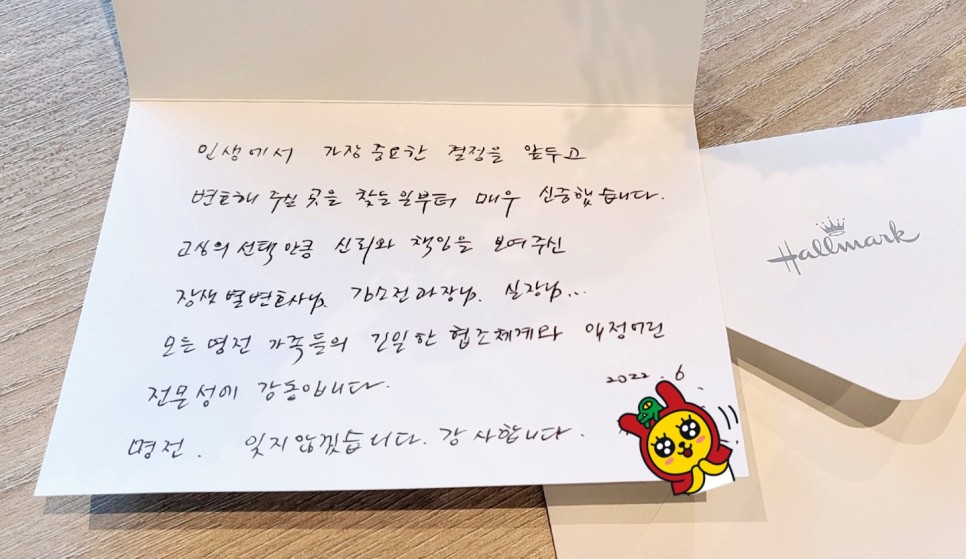 인생에서 가장 중요한 결정을 앞두고
변호해 주실 곳을 찾는 일부터 매우 신중했습니다.
고심의 선택 만큼 신뢰와 책임을 보여주신
장샛별변호사님, 김소전과장님, 실장님...
모든 명전 가족들의 긴밀한 협조체계와 애정어린
전문성에 감동입니다.
2022. 6
명전. 잊지 않겠습니다. 감사합니다.
Hallmark